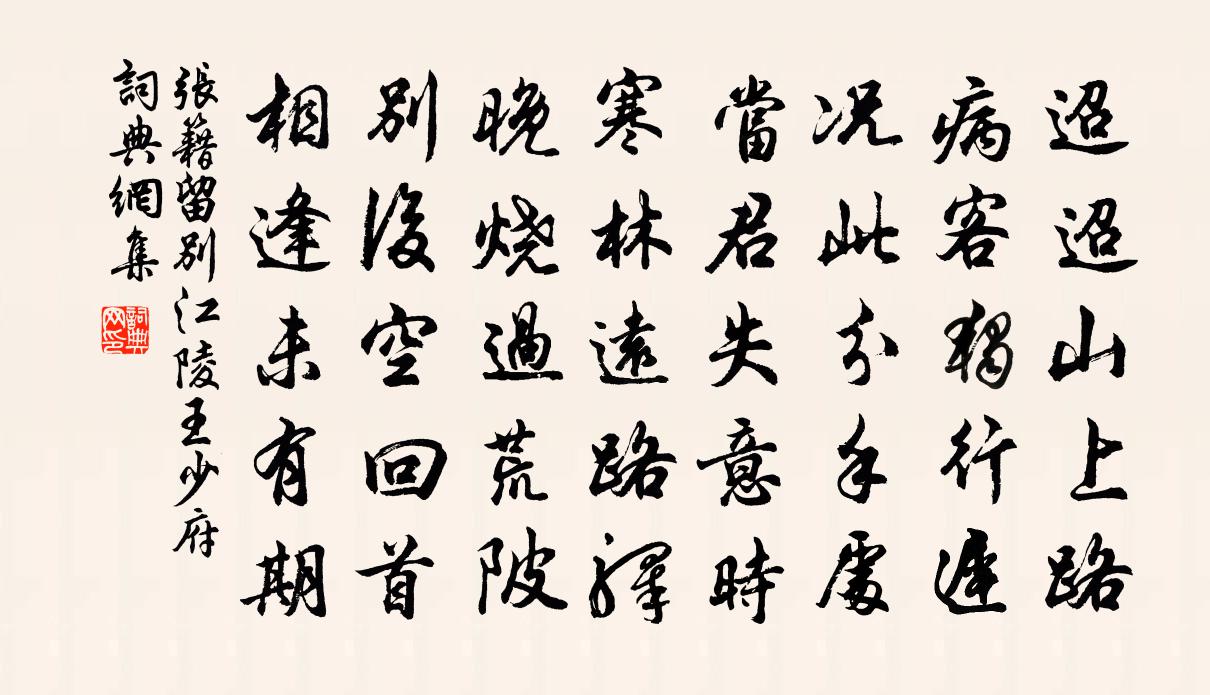 迢迢山上路
病客獨行遲
况此分手處
當君失意時
寒林遠路驛
晚烧過荒陂
別後空回首
相逢未有期
張籍留別江陵王少府
詞典網集
詞典网印